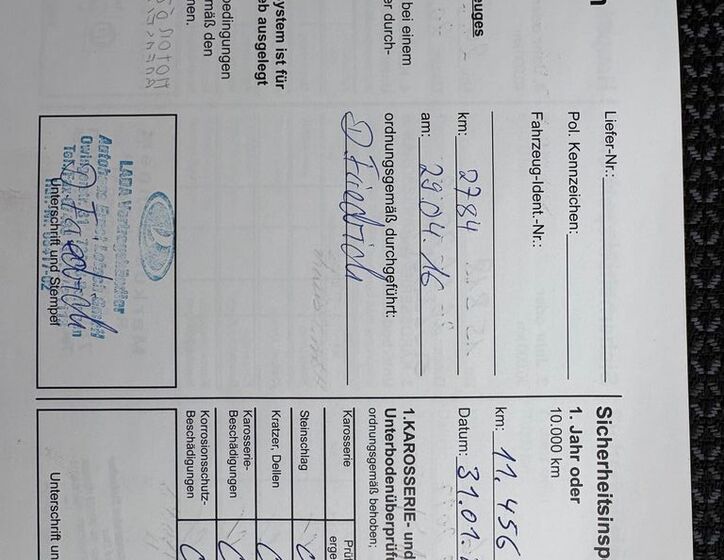 n
euges
bei einem
er durch-
system ist für
eb ausgelegt
bedingungen
mäß den
nen.
Liefer-Nr.:
Pol. Kennzeichen:
Fahrzeug-Ident.-Nr.:
km: 2784
am: 29.04.16
ordnungsgemäß durchgeführt:
D Friedrich
LADA Vertragshändler
Unterschrift und Stempel
Sicherheitsinsp
1. Jahr oder
10.000 km
km: 11.456
Datum: 31.01.
1.KAROSSERIE- und
Unterbodenüberprüf
ordnungsgemäß behoben;
Karosserie
Prü
erge
Steinschlag
Kratzer, Dellen
Karosserie-
Beschädigungen
Korrosionsschutz-
Beschädigungen
Unterschrift un